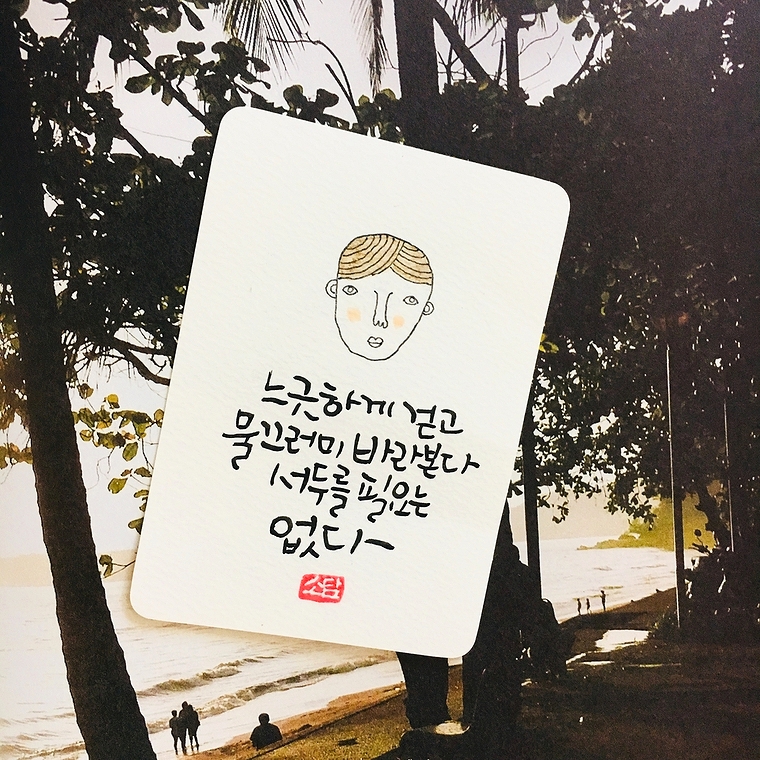 느긋하게 걷고
물끄러미 바라본다
서두를 필요는
없다
소담